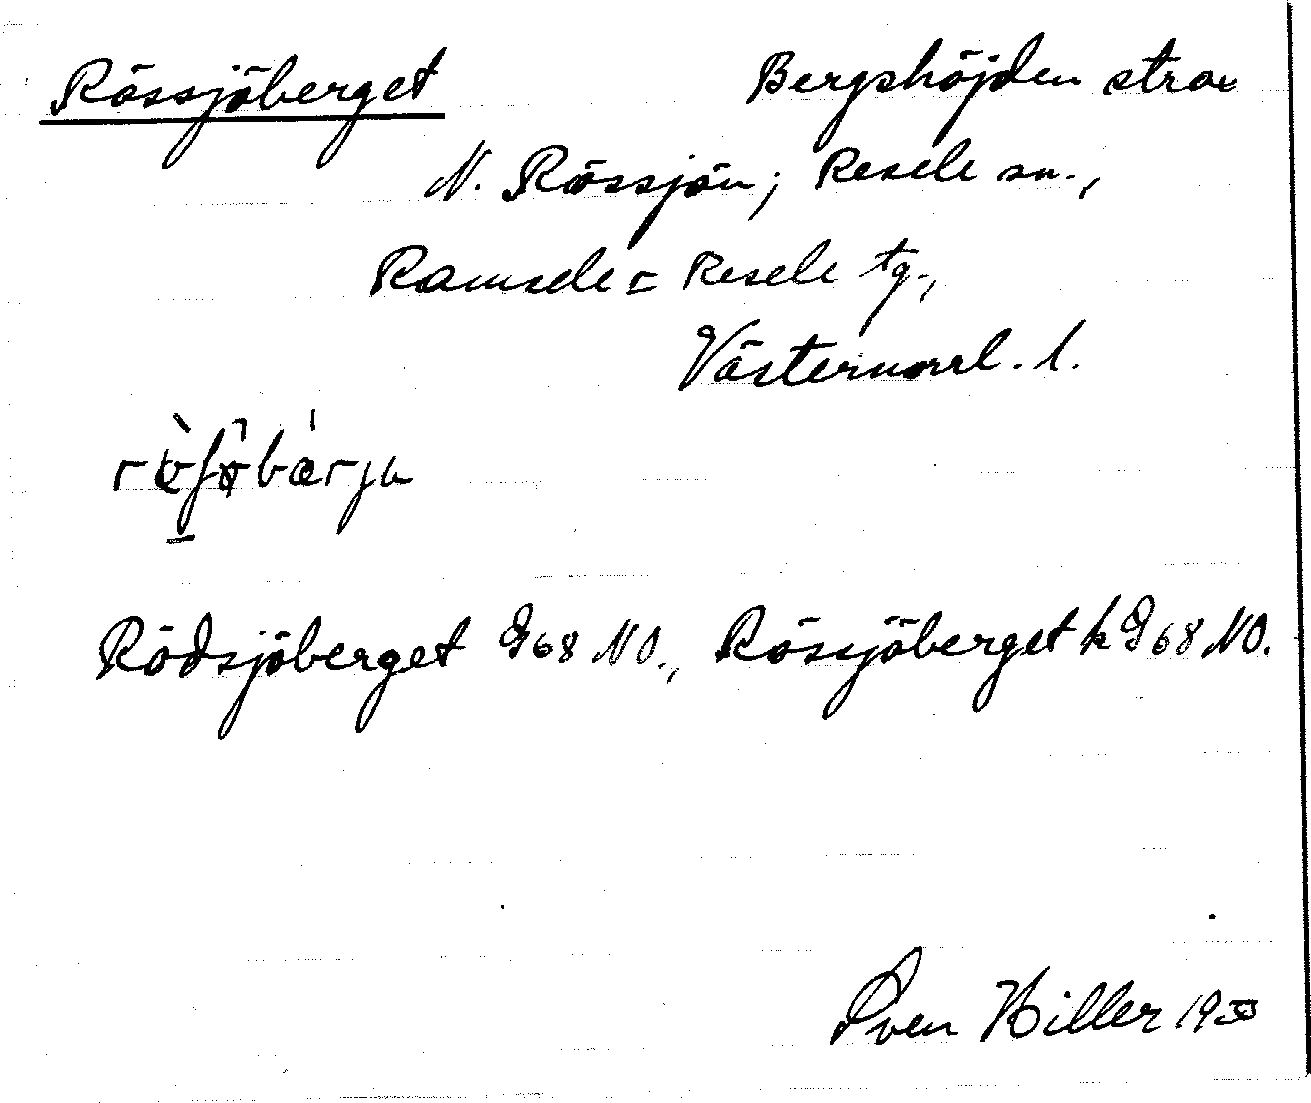 Rössjöberget Bergshöjden strax
N. Rössjön; Resele sn.,
Ramsele = Resele tg.,
Västernorrl. l.
Rödsjöberget G68 NO., Rössjöberget k G68 NO.
Sven Hiller 1950